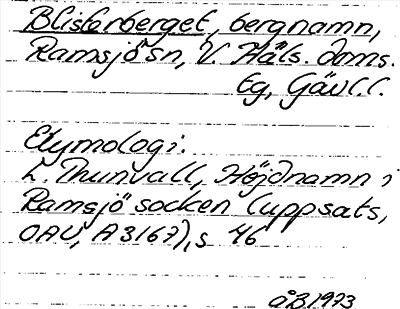 Blisterberget, bergnamn,
Ramsjö sn, V. Häls. doms.
Eg, Gävl.l.
Etymologi:
L. Thunvall, Höjdnamn i
Ramsjö socken (uppsats,
OAU, A3167), s 46
åB 1973